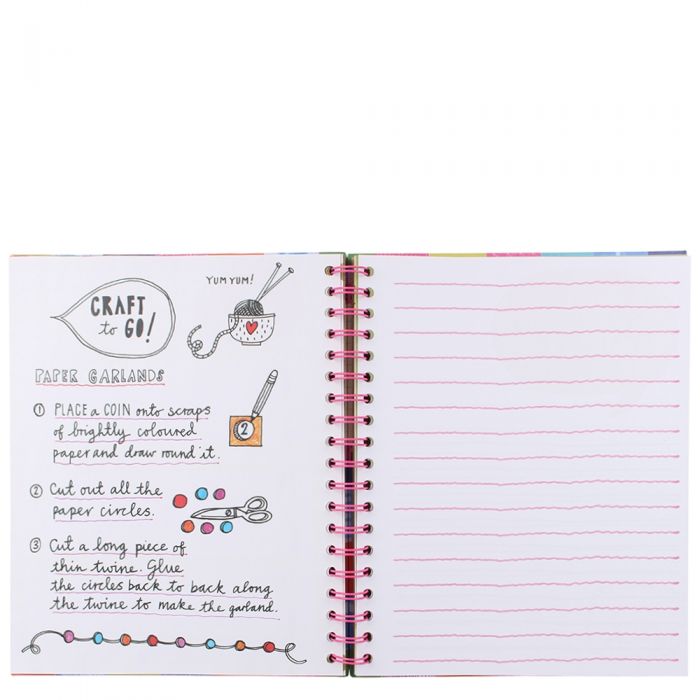 CRAFT
to GO!
YUM YUM!
PAPER GARLANDS
1 PLACE a COIN onto scraps
of brightly coloured
paper and draw round it.
2
2 Cut out all the
paper circles.
3 Cut a long piece of
thin twine. Glue
the circles back to back along
the twine to make the garland.